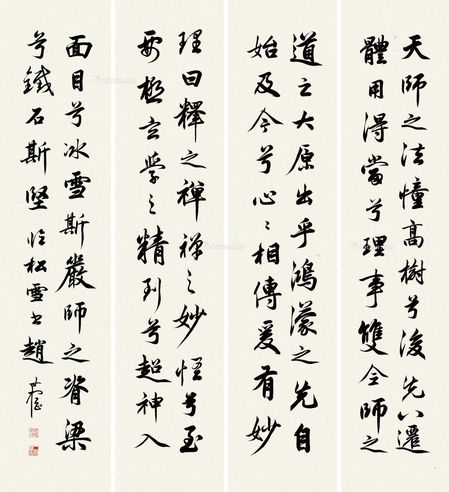 天師之法幢高樹兮後先遷
體用得當兮理事雙全師之
道之大原出乎鴻濛之先自
始及今兮心心相傳爰有妙
理曰釋之禪禪之妙悟兮至
要極玄學之精到兮超神入
面目兮冰雪斯嚴師之脊梁
兮鐵石斯堅 臨松雪書 趙